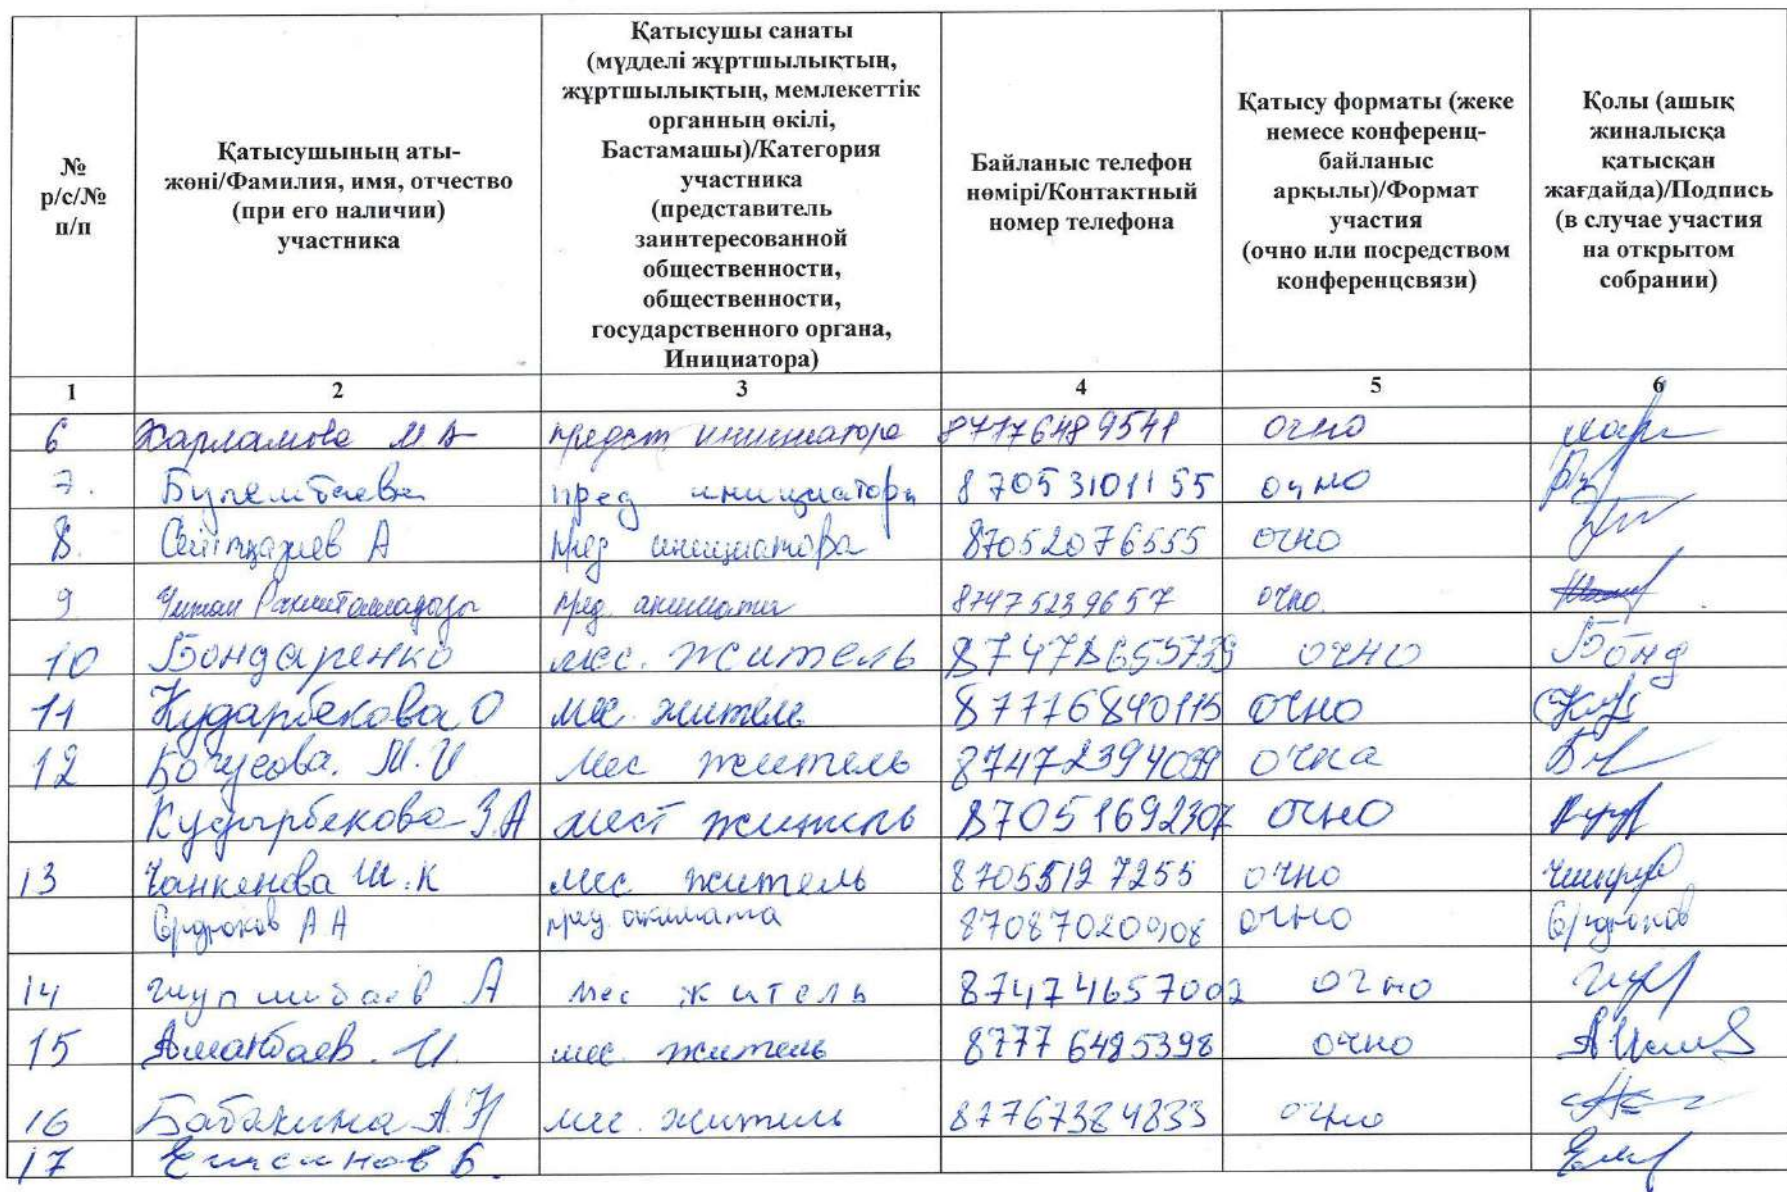 №
р/с/№
п/п
Қатысушының аты-
жөні/Фамилия, имя, отчество
(при его наличии)
участника
Қатысушы санаты
(мүдделі жұртшылықтың,
жұртшылықтың, мемлекеттік
органның өкілі,
Бастамашы)/Категория
участника
(представитель
заинтересованной
общественности,
общественности,
государственного органа,
Инициатора)
Байланыс телефон
нөмірі/Контактный
номер телефона
Қатысу форматы (жеке
немесе конференц-
байланыс
арқылы)/Формат
участия
(очно или посредством
конференцсвязи)
Қолы (ашық
жиналысқа
қатысқан
жағдайда)/Подпись
(в случае участия
на открытом
собрании)
1 2 3 4 5 6
6 Харламова М А предст инициатора 87776489541 очно
7. пред инициатора 87053101155 очно
8. А пред инициатора 87052076555 очно
9 пред. 87475239657 очно.
10 Бондаренко мес. житель очно Бонд
11 Кударбекова О мес. житель 87776840115 очно
12 М. И мес житель 87472394099 очна
Кудырбекова З.А мест житель 87051692307 очно
13 Чанкенова Ш. К мес житель 87055127255 очно
Сердюков А А пред. акимата очно Сердюков
14 А мес житель 87474657002 очно
15 Аманбаев. И. мес. житель 87776485398 очно
16 Бабакина А. Н мес. житель 87767384833 очно
17 Б.